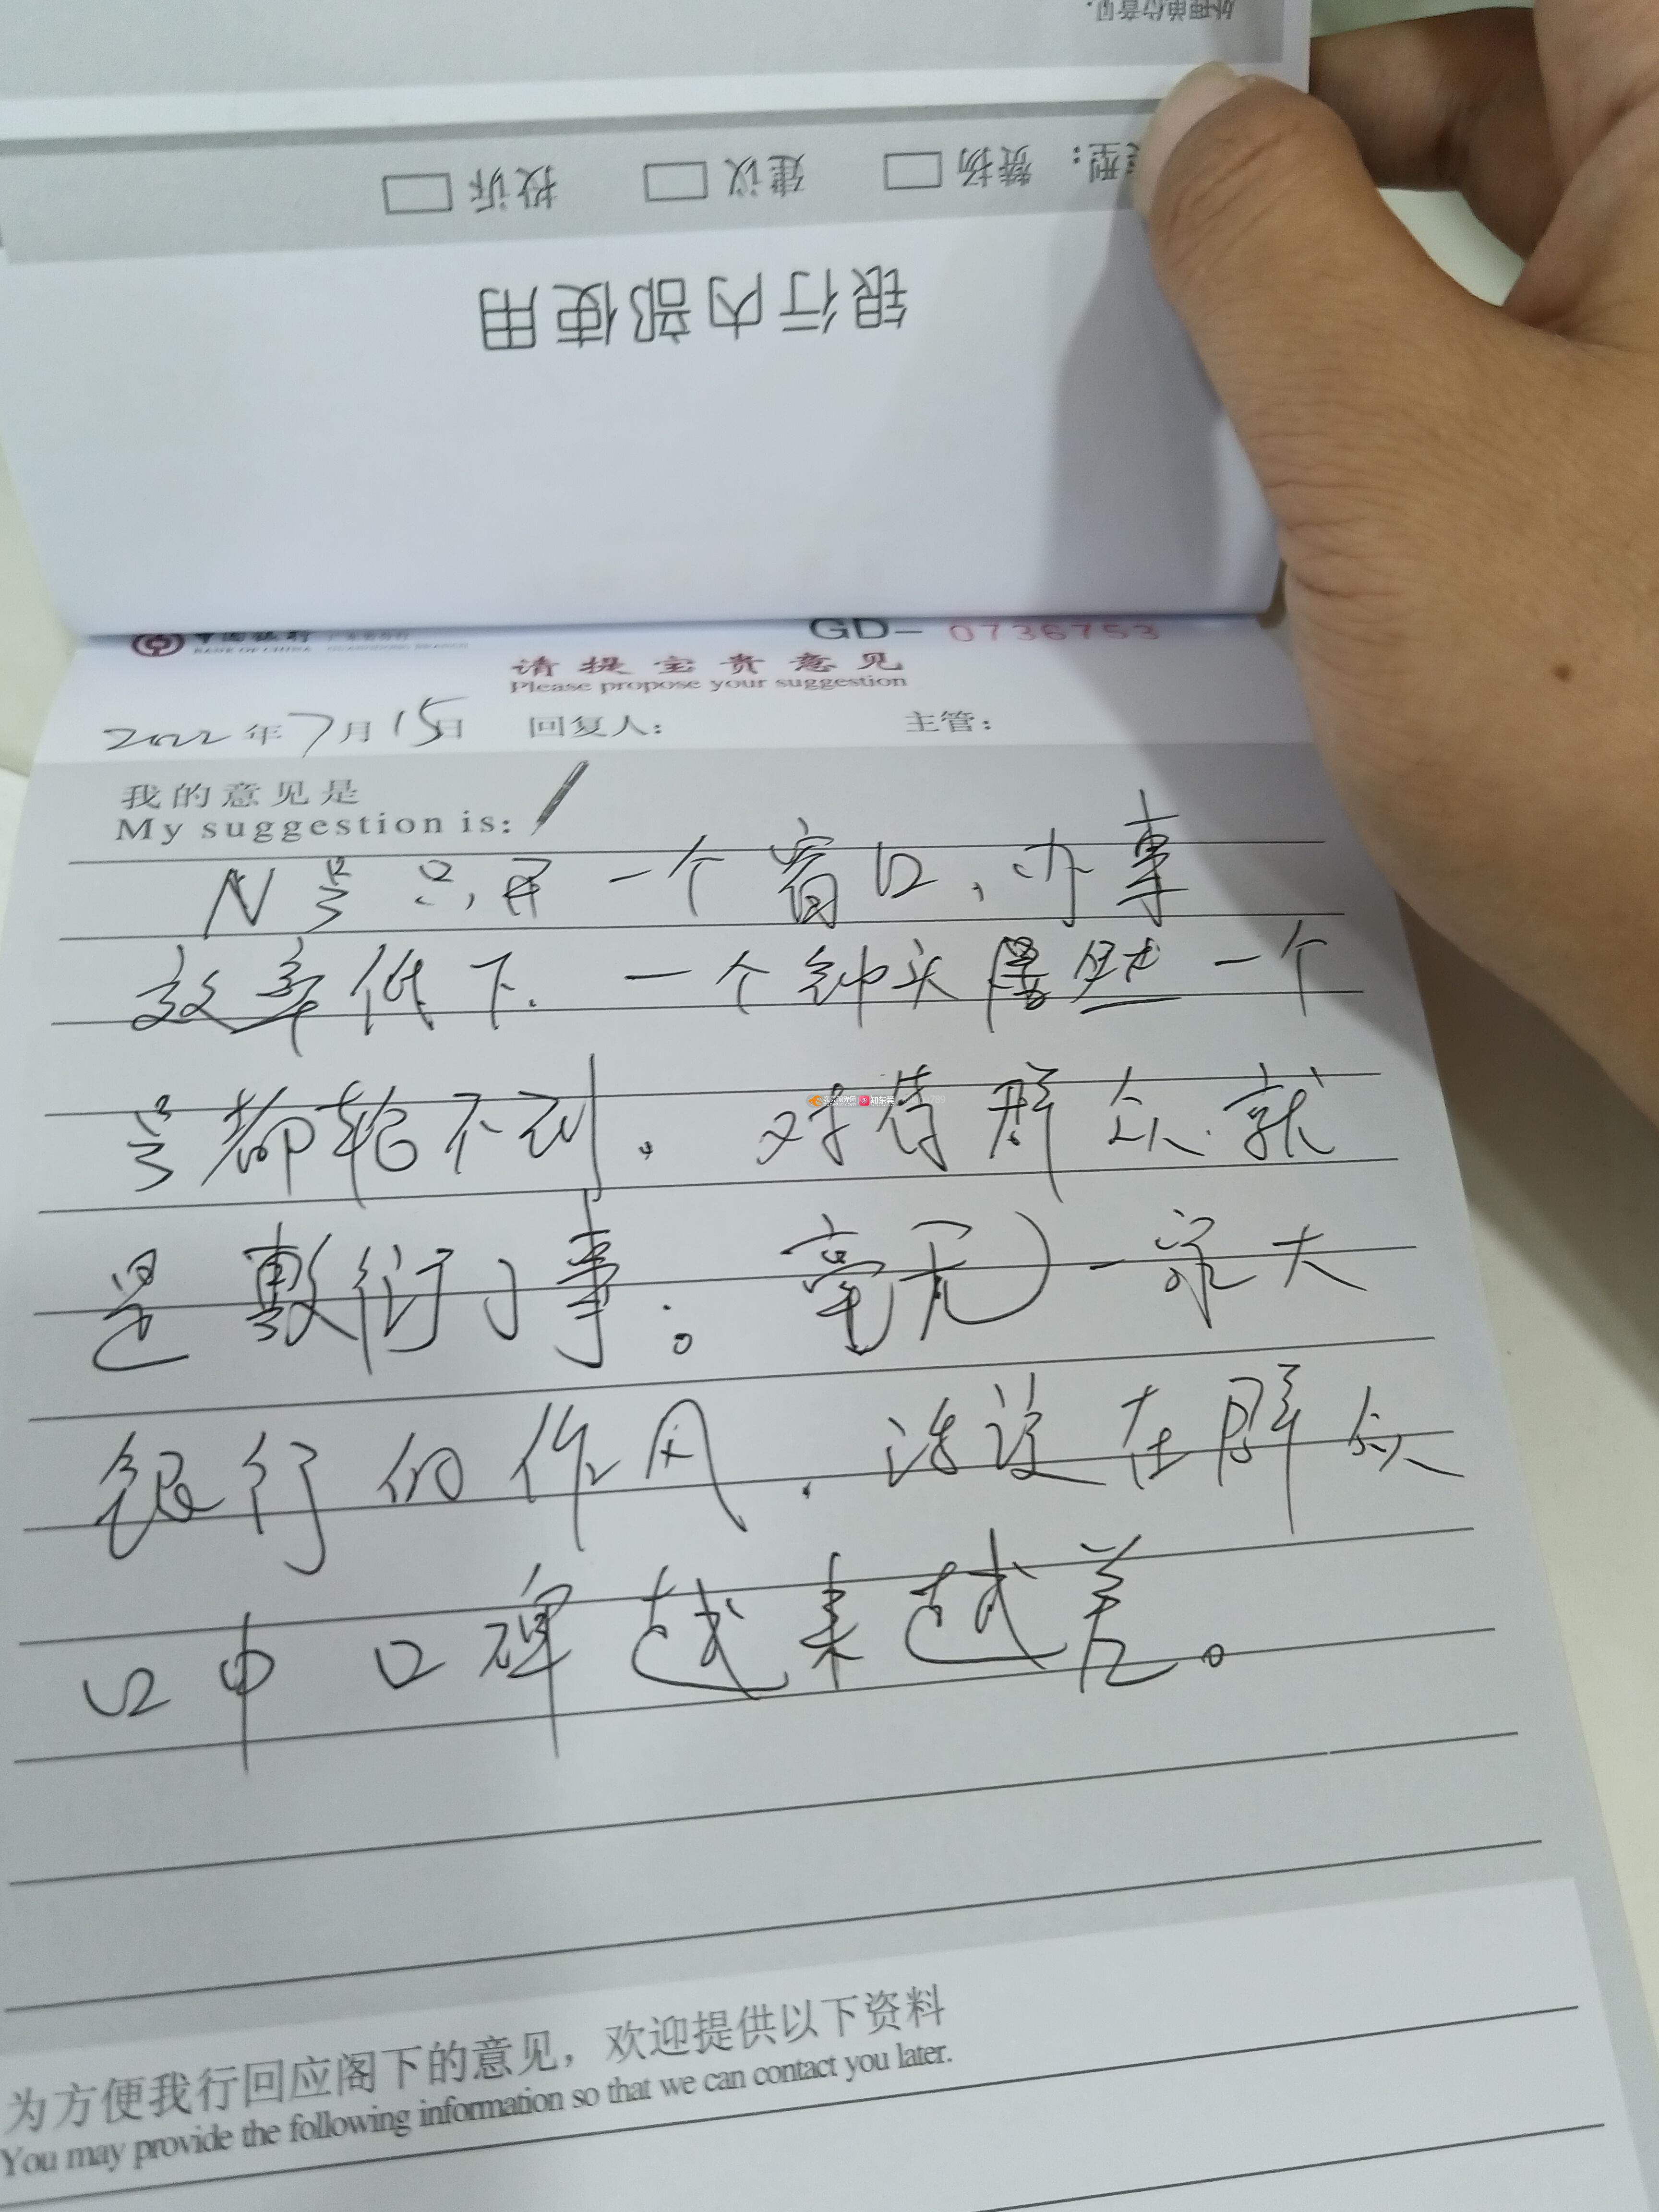 处理单位意见
类型： 赞扬 建议 投诉
银行内部使用
中国银行
BANK OF CHINA
GD- 0736753
请提宝贵意见
Please propose your suggestion
2022年7月15日 回复人： 主管：
我的意见是
My suggestion is:
N号只开一个窗口,办事
效率低下. 一个钟头 一个
号都轮不到. 对待群众就
是敷衍了事。毫无一家大
银行的作风. 活该在群众
口中口碑越来越差。
为方便我行回应阁下的意见，欢迎提供以下资料
You may provide the following information so that we can contact you later.